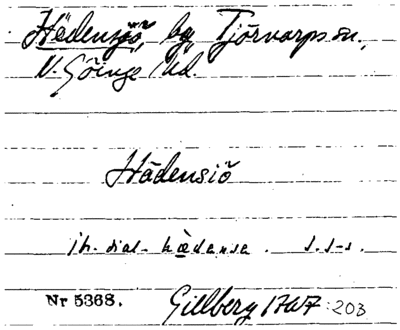 Hädensjö, by Tjörnarps sn.,
V. Göinge hd.
Hädensiö
ih. dial. hædansa. s. s-s.
Nr 5368. Gillberg 1767: 203